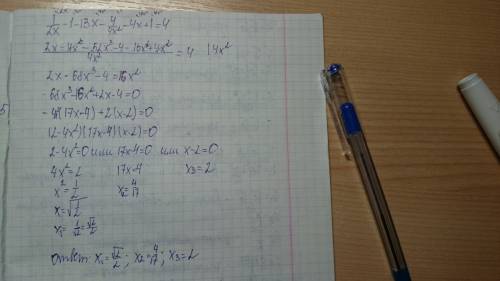 1/2x - 1 - 13x - 4/4x² - 4x + 1 = 4
= 4 |4x²
2x - 68x³ - 4 = 16x²
68x³ - 16x² + 2x - 4 = 0
(17x - 4) + 2(x - 2) = 0
(2 - 4x²)(17x - 4)(x - 2) = 0
2 - 4x² = 0 или 17x - 4 = 0 или x - 2 = 0
4x² = 2 17x - 4 x₃ = 2
x² = 1/2 x₂ = 4/17
x = √1/2
x₁ = 1/√2 = √2/2
ответ: x₁ = √2/2; x₂ = 4/17; x₃ = 2